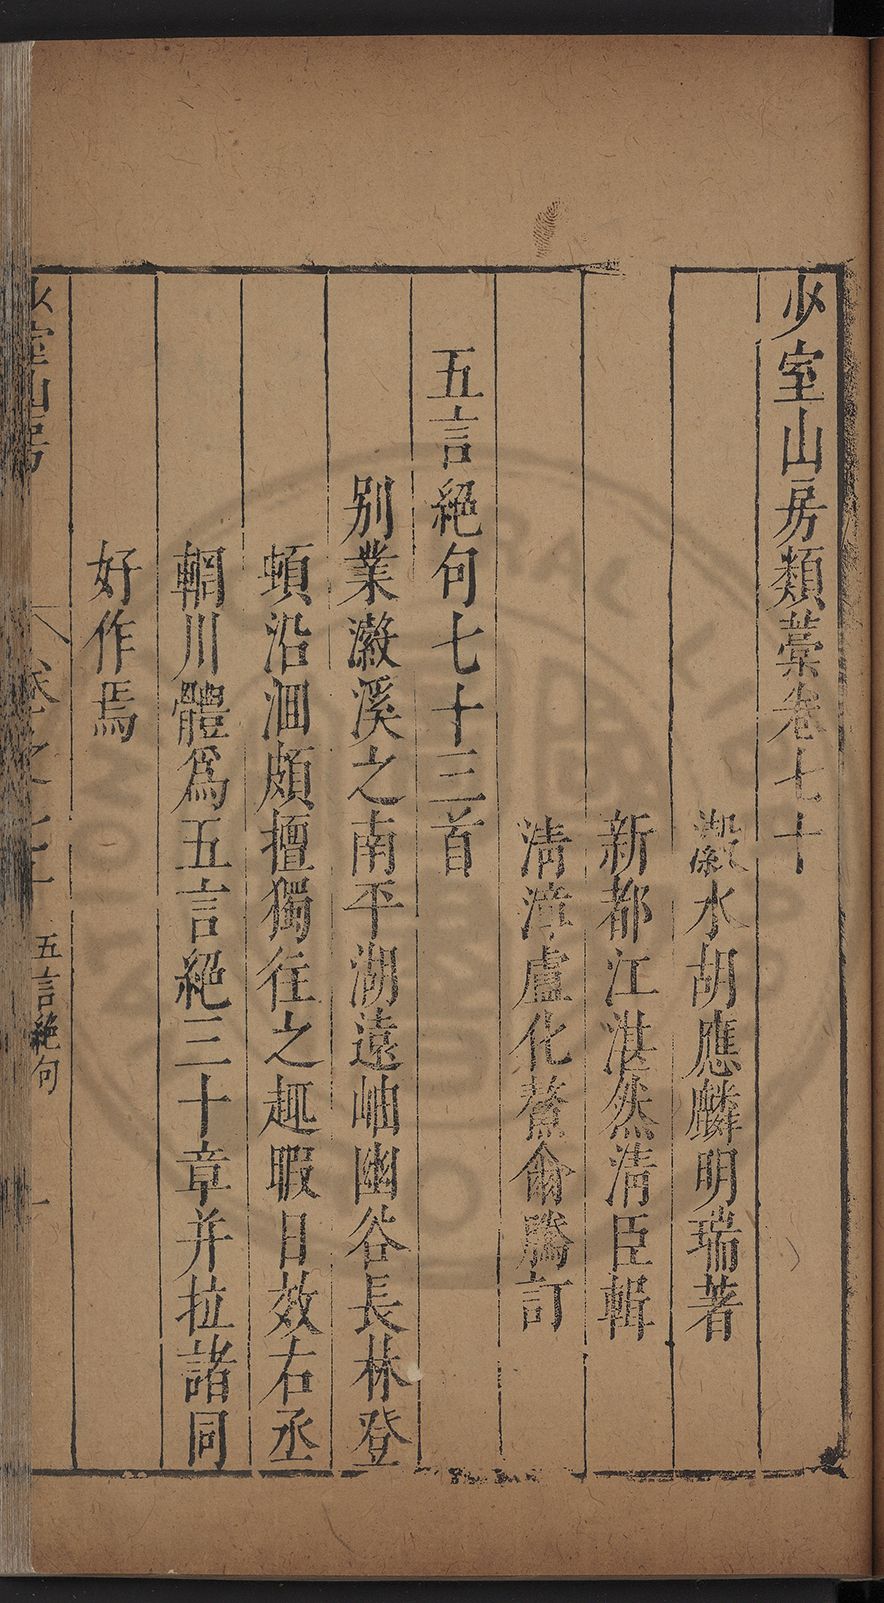 少室山房類藁卷七十
瀫水胡應麟明瑞著
新都江湛然清臣輯
清漳盧化鰲俞騰訂
五言絕句七十三首
别業瀫溪之南平湖遠岫幽谷長林登
頓沿洄頗擅獨往之趣暇日效右丞
輞川體爲五言絕三十章并拉諸同
好作焉
少室山房
卷之七十
五言絕句
一